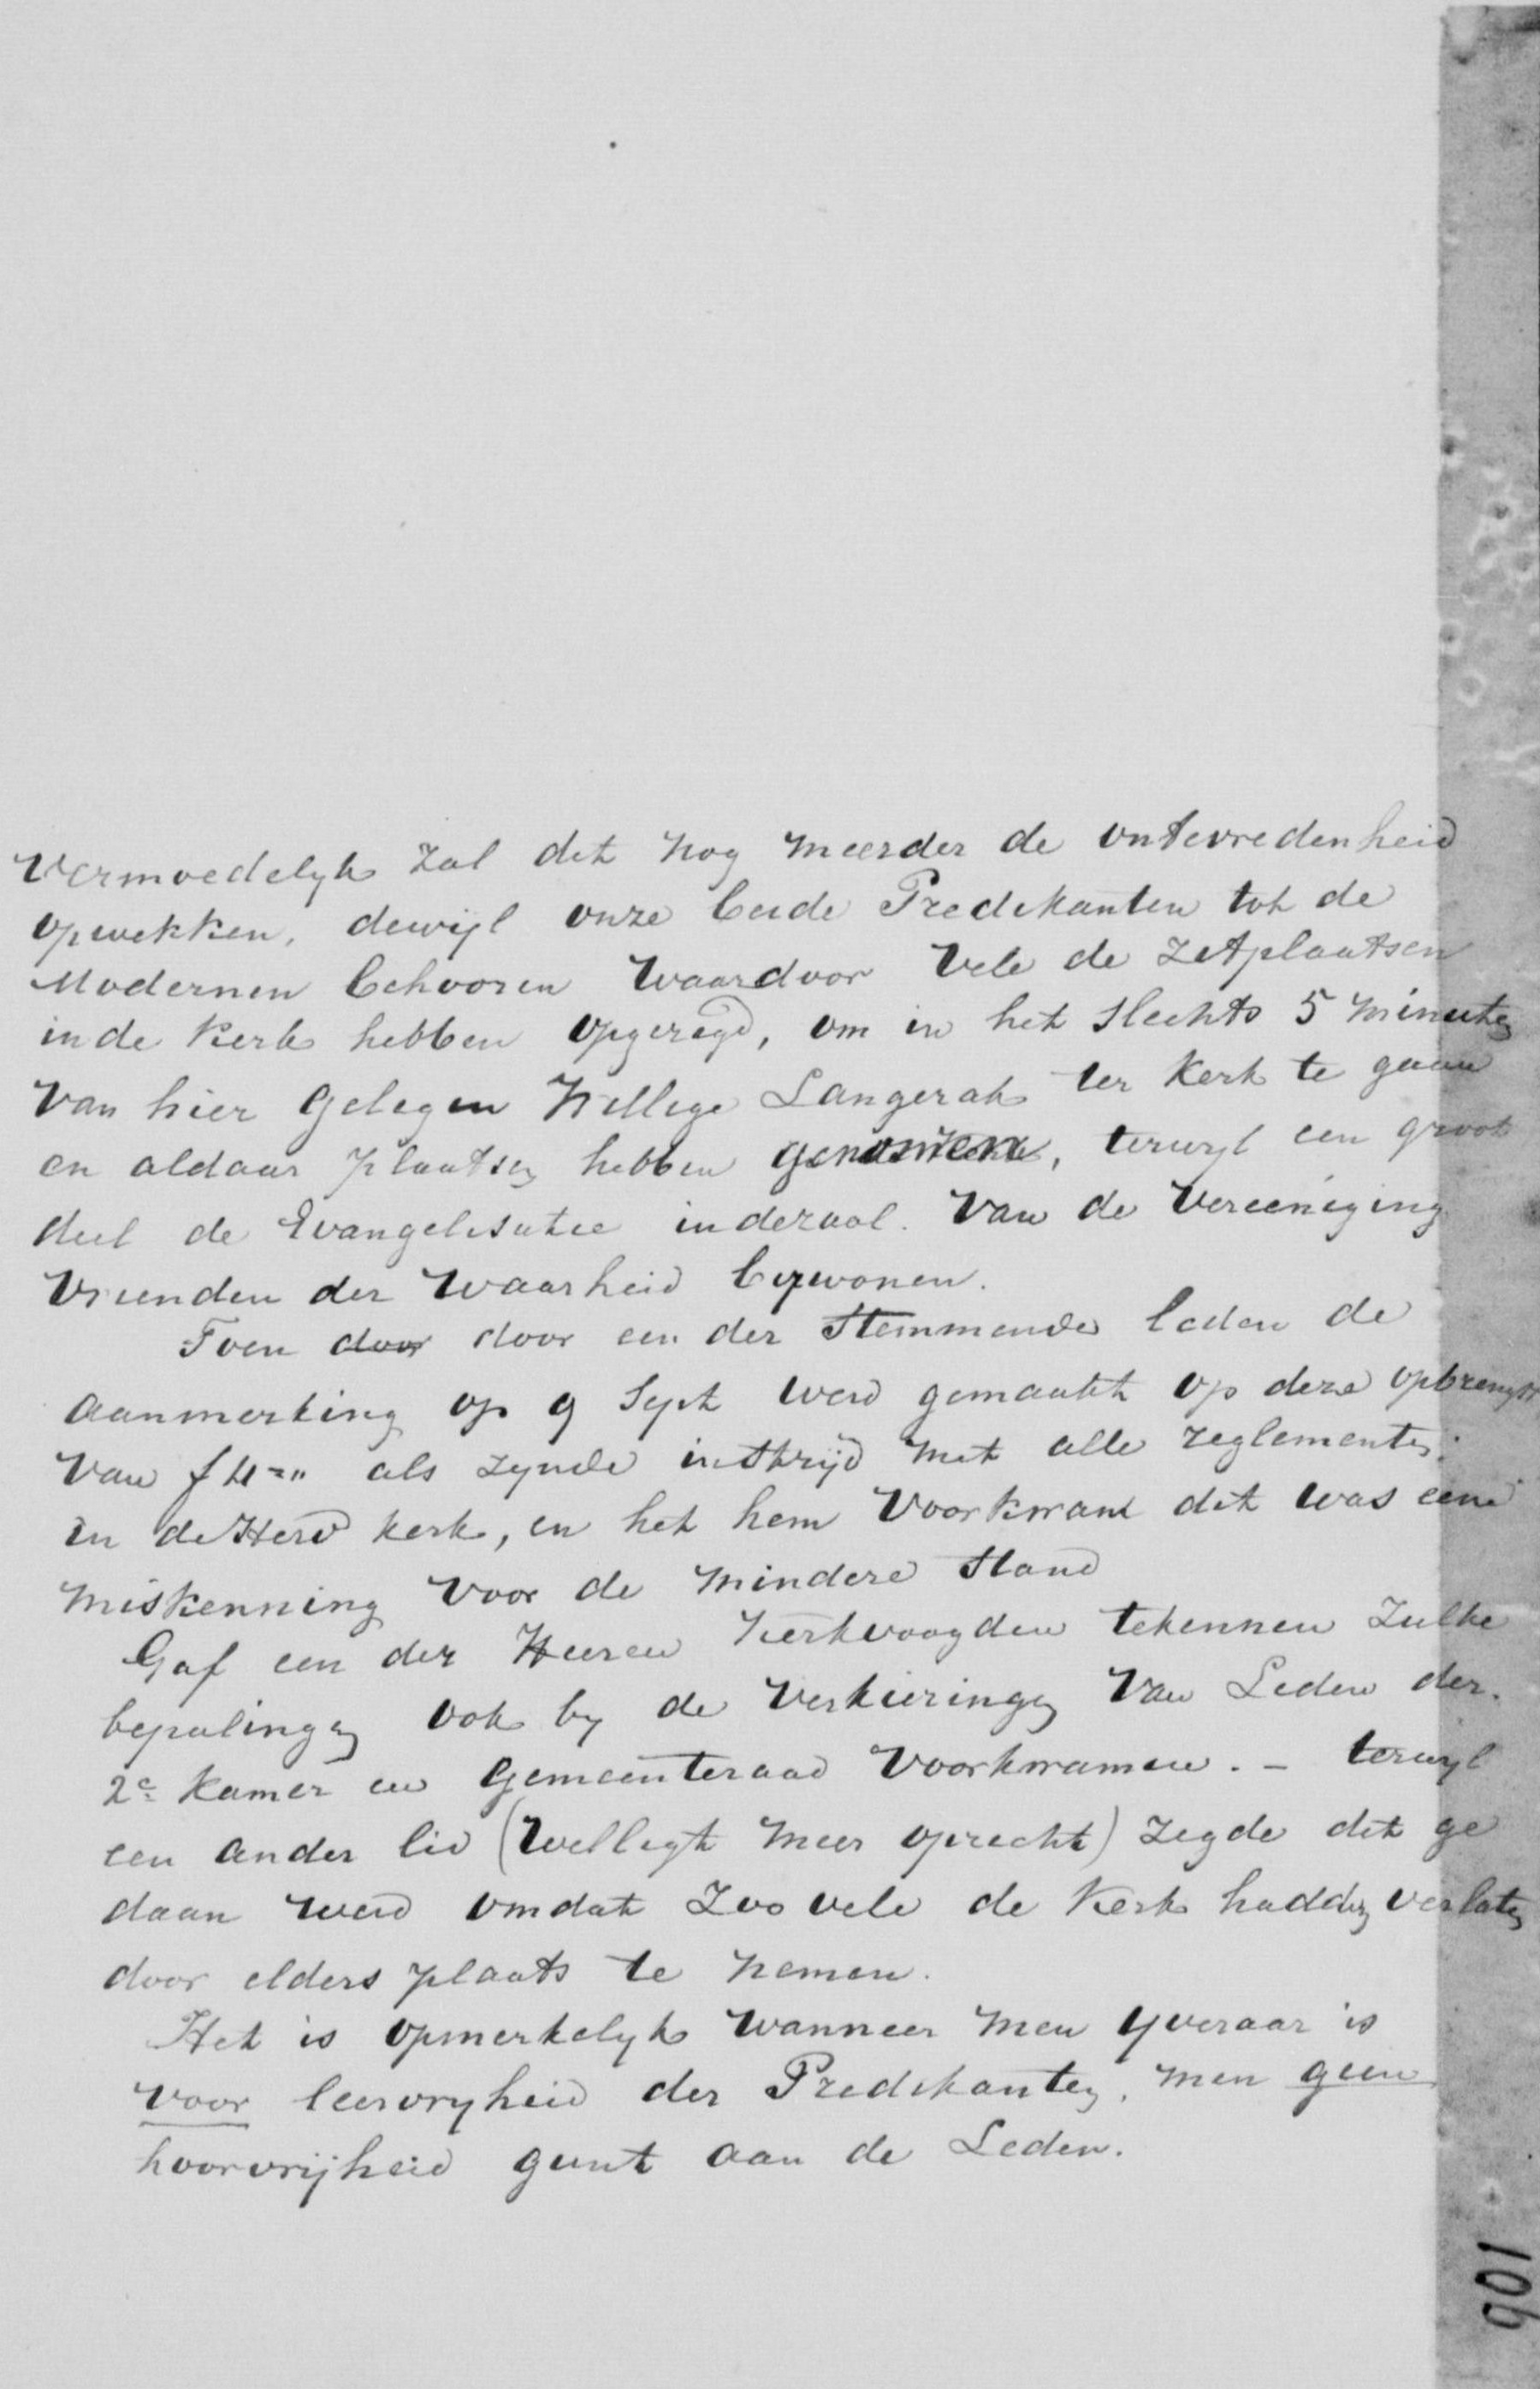 Vermoedelyk zal dit nog meerder de ontevredenheid
opwekken, dewijl onze beide Predikanten tot de
Modernen behooren waardoor vele de zitplaatsen
in de kerk hebben opgezegd, om in het slechts 5 minuten
van hier gelegen Willige Langerak ter kerk te gaan
en aldaar plaatsen hebben genomen, terwyl een groot
deel de Evangelisatie in de zaal. van de Vereeniging
Vrienden der Waarheid bijwonen.
Toen door door een der Stemmende leden de
aanmerking op 9 Sept werd gemaakt op deze opbrengst
van als zynde in strijd met alle reglementen
in de Herv kerk, en het hem voorkwam dit was eene
miskenning voor de mindere stand
Gaf een der Heeren Kerkvoogden te kennen zulke
bepalingen ook by de verkiezingen van Leden der
2e Kamer en Gemeenteraad voorkwamen. - terwyl
een ander lid (welligt meer oprecht) zegde dit ge
daan werd omdat zoo vele de kerk hadden verlaten
door elders plaats te nemen.
Het is opmerkelyk wanneer men yveraar is
voor leervryheid der Predikanten, men geen
hoorvrijheid gunt aan de Leden.
106